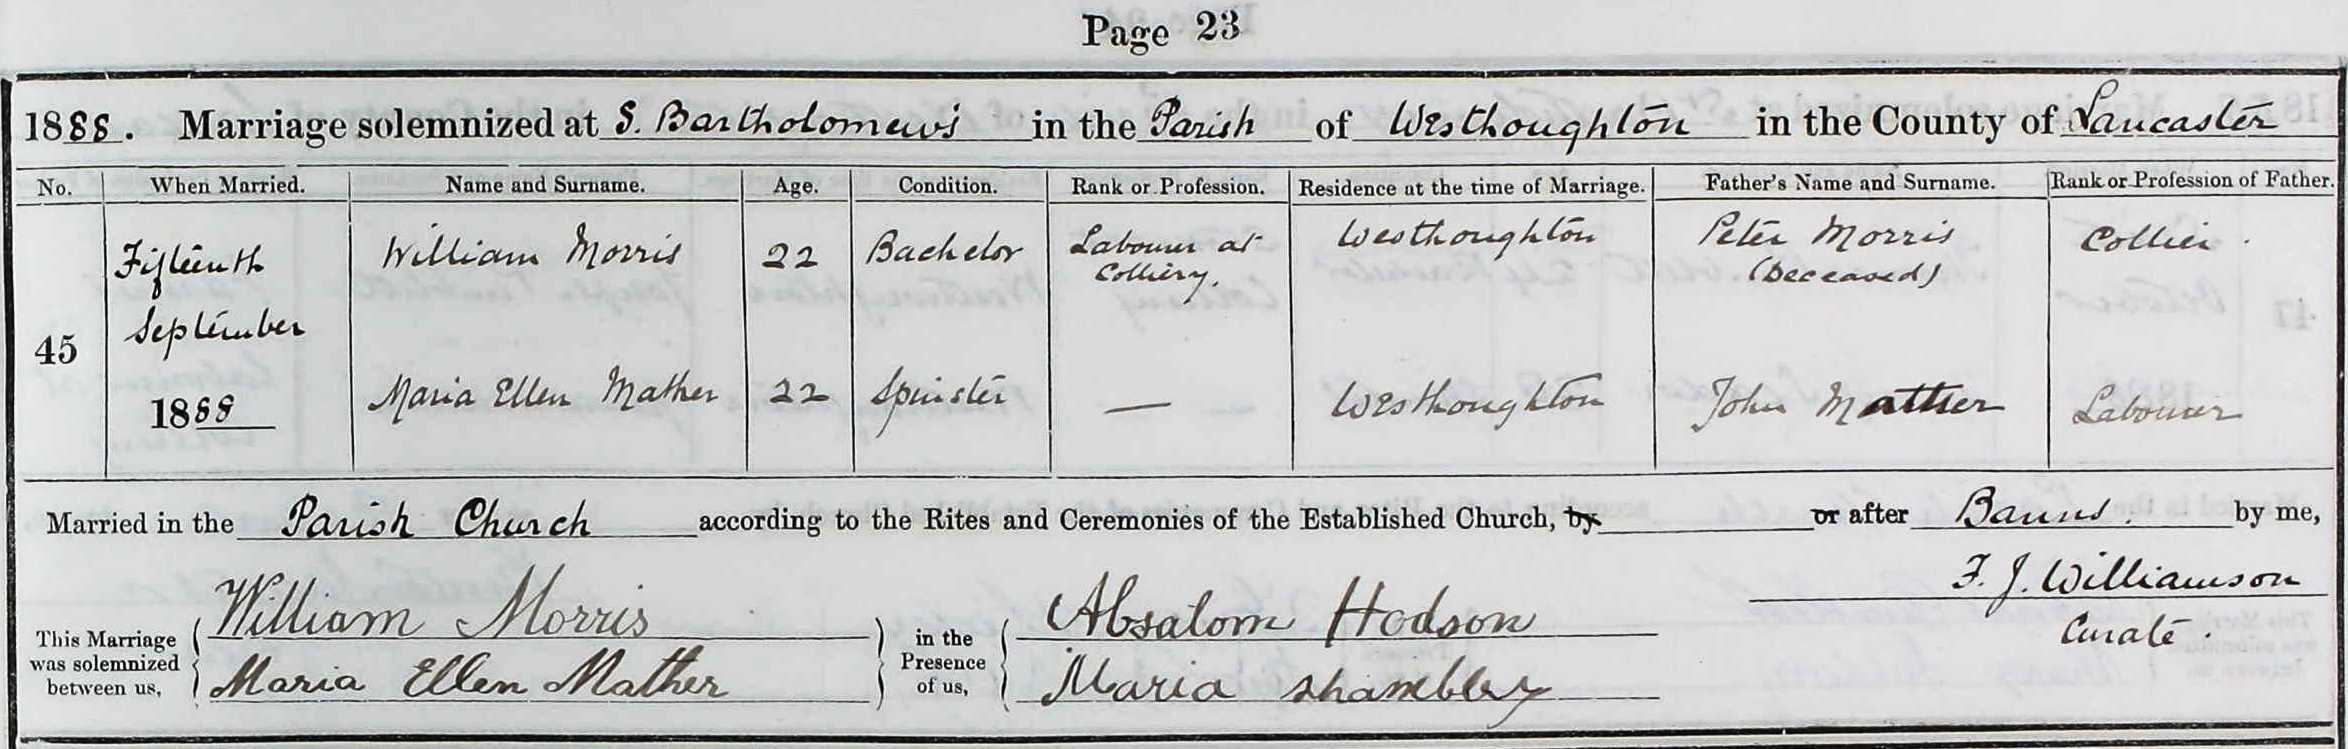 Page 23
1888. Marriage solemnized at S. Bartholomew's in the Parish of Westhoughton in the County of Lancaster
No. When Married. Name and Surname. Age. Condition. Rank or Profession. Residence at the time of Marriage. Father's Name and Surname. Rank or Profession of Father.
45
Fifteenth
September
1888
William Morris 22 Bachelor Labourer at
Colliery. Westhoughton Peter Morris
(Deceased) Collier.
Maria Ellen Mather 22 Spinster — Westhoughton John Mather Labourer
Married in the Parish Church according to the Rites and Ceremonies of the Established Church, by or after Banns. by me,
F. J. Williamson
Curate.
This Marriage
was solemnized
between us,
William Morris
Maria Ellen Mather
in the
Presence
of us,
Absalom Hodson
Maria